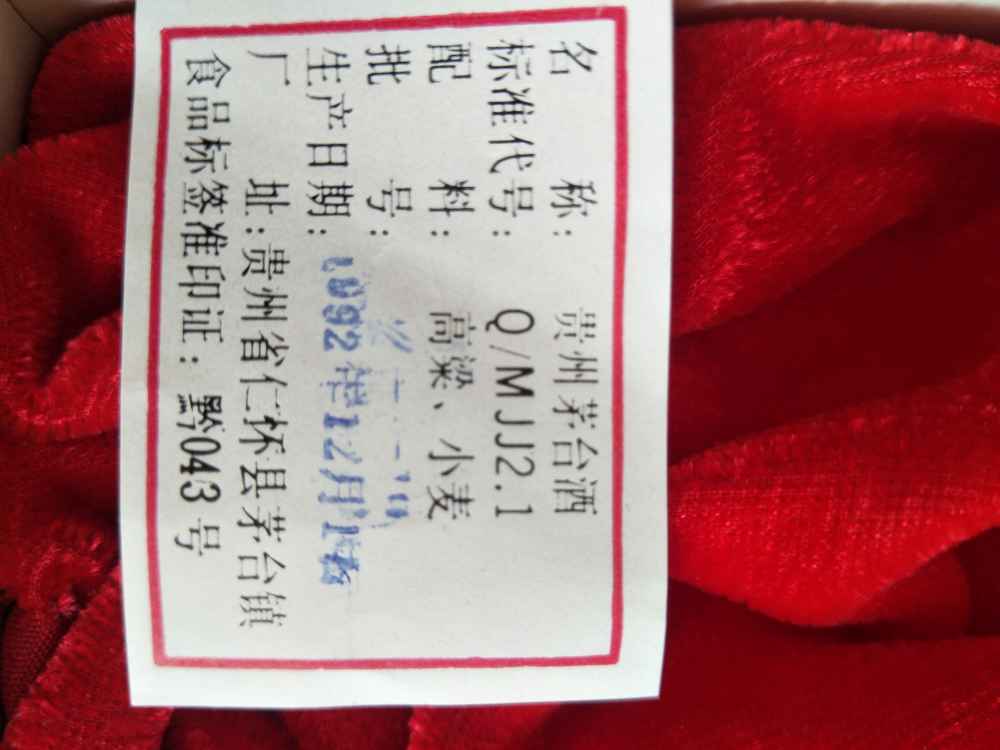 名称：贵州茅台酒
标准代号：Q/MJJ2.1
配料：高粱、小麦
批号：
生产日期：1992年12月1
厂址：贵州省仁怀县茅台镇
食品标签准印证：黔043号